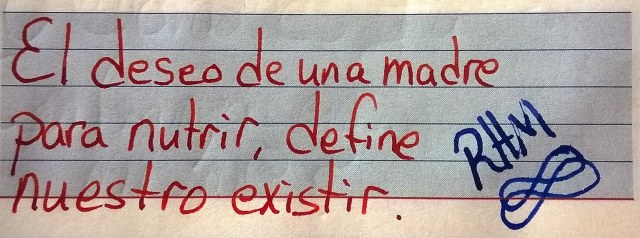 El deseo de una madre
para nutrir, define
nuestro existir.
RHM